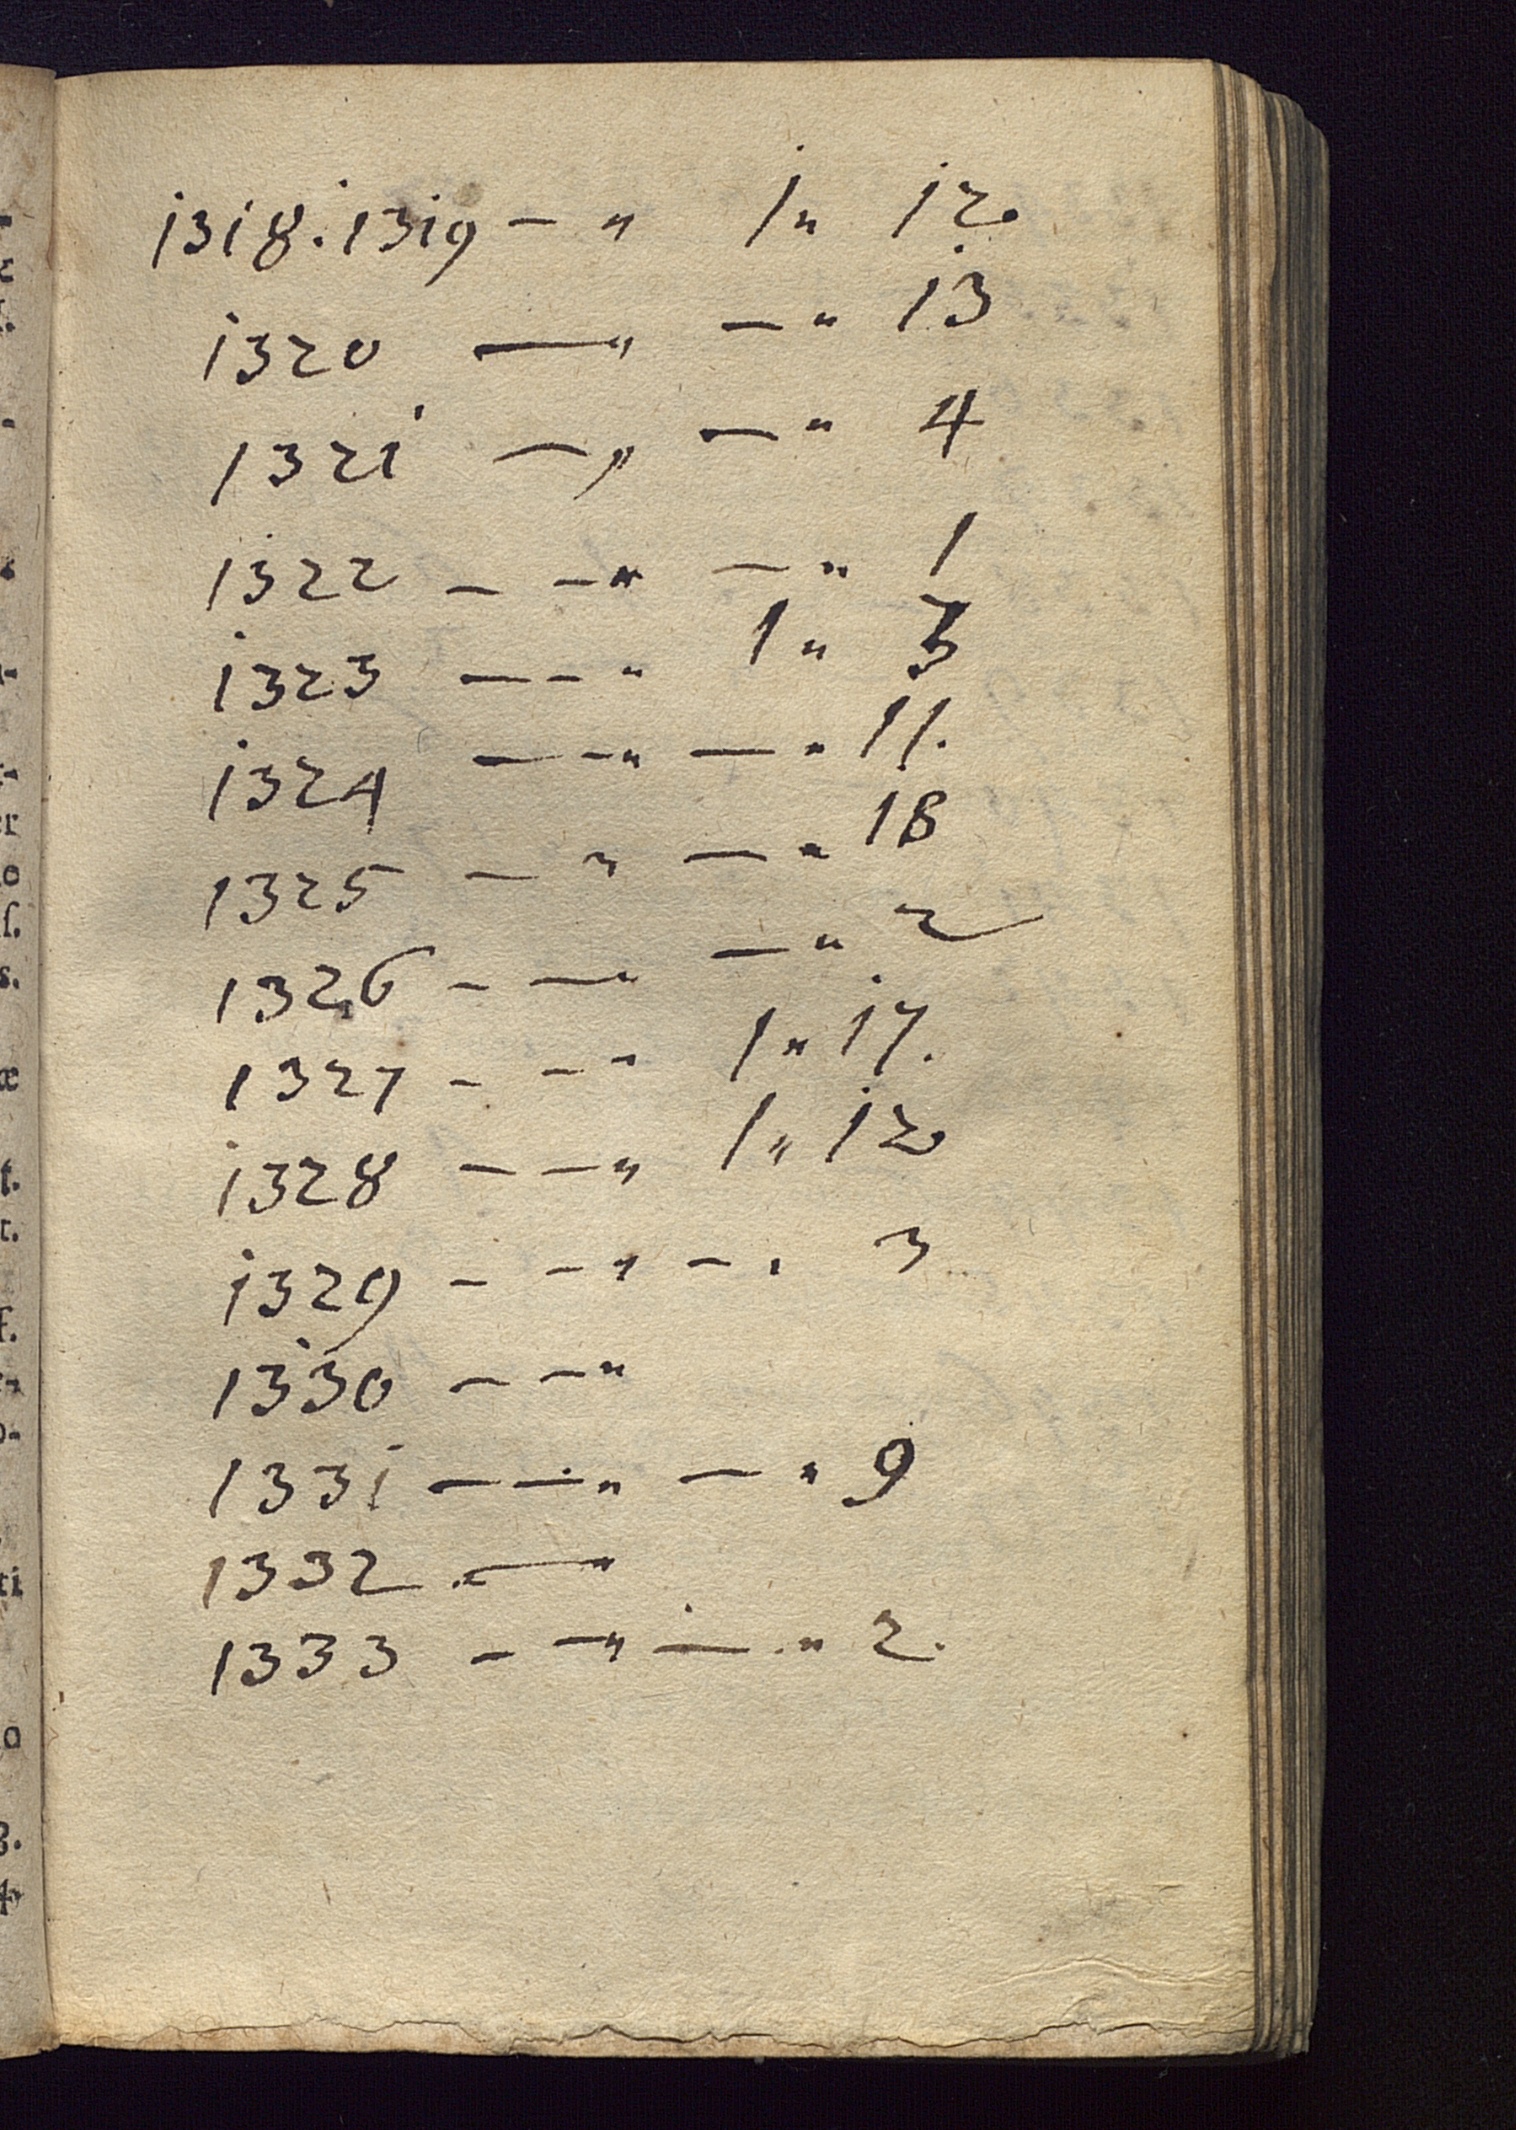 1318.1319 — „ 1„ 12.
1320 — „ — „ 13
1321 — „ — „ 4
1322 — — „ — „ 1
1323 — — „ 1 „ 3
1324 — — „ — „ 11.
1325 — „ — „ 18
1326 — — „ — „ 2
1327 — — „ 1 „ 17.
1328 — — „ 1 „ 12
1329 — — „ — „ 3
1330 — — „
1331 — — „ — „ 9
1332 — „
1333 — — „ — „ 2.